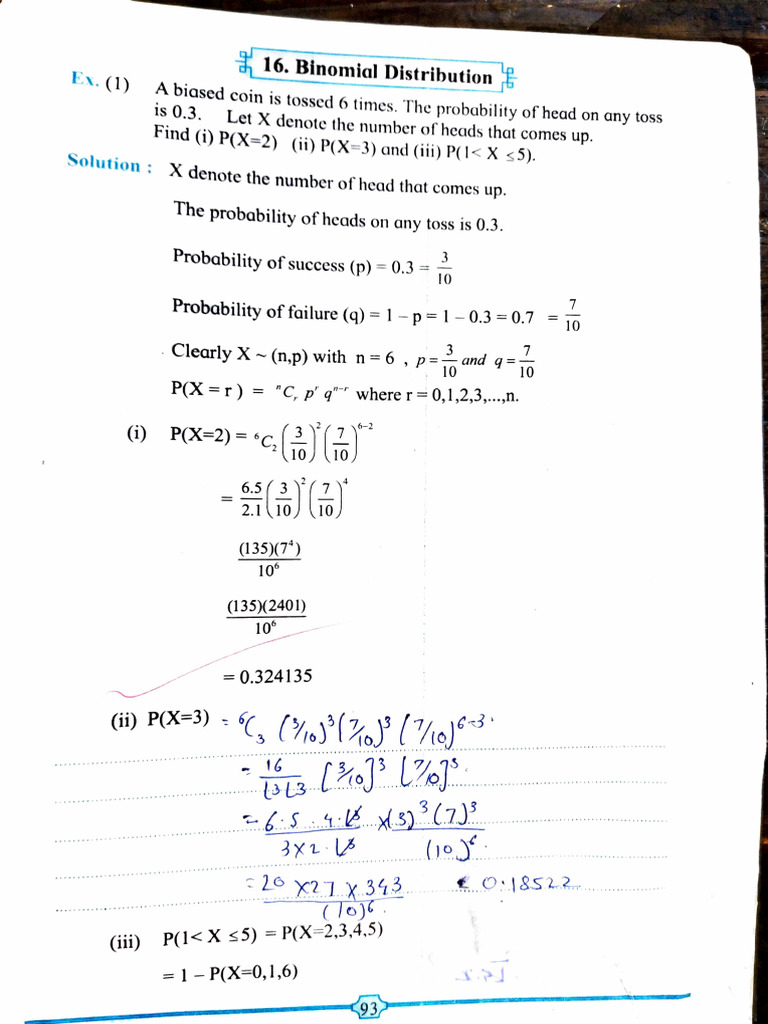 16. Binomial Distribution
Ex. (1) A biased coin is tossed 6 times. The probability of head on any toss
is 0.3. Let X denote the number of heads that comes up.
Find (i) P(X=2) (ii) P(X=3) and (iii) P(1< X ≤5).
Solution : X denote the number of head that comes up.
The probability of heads on any toss is 0.3.
Probability of success (p) = 0.3 = 3/10
Probability of failure (q) = 1 – p = 1 – 0.3 = 0.7 = 7/10
Clearly X ~ (n,p) with n = 6 , p = 3/10 and q = 7/10
P(X = r ) = ⁿCᵣ pʳ qⁿ⁻ʳ where r = 0,1,2,3,...,n.
(i) P(X=2) = ⁶C₂ (3/10)² (7/10)⁶⁻²
= 6.5/2.1 (3/10)² (7/10)⁴
(135)(7⁴)/10⁶
(135)(2401)/10⁶
= 0.324135
(ii) P(X=3) = ⁶C₃ (3/10)³ (7/10)³ (7/10)⁶⁻³
= 16/⌊3⌊3 [3/10]³ [7/10]³
= 6·5·4·⌊3/3×2·⌊3 × (3)³(7)³/(10)⁶
= 20×27×343/(10)⁶ = 0.18522
(iii) P(1< X ≤5) = P(X=2,3,4,5)
= 1 – P(X=0,1,6)
93